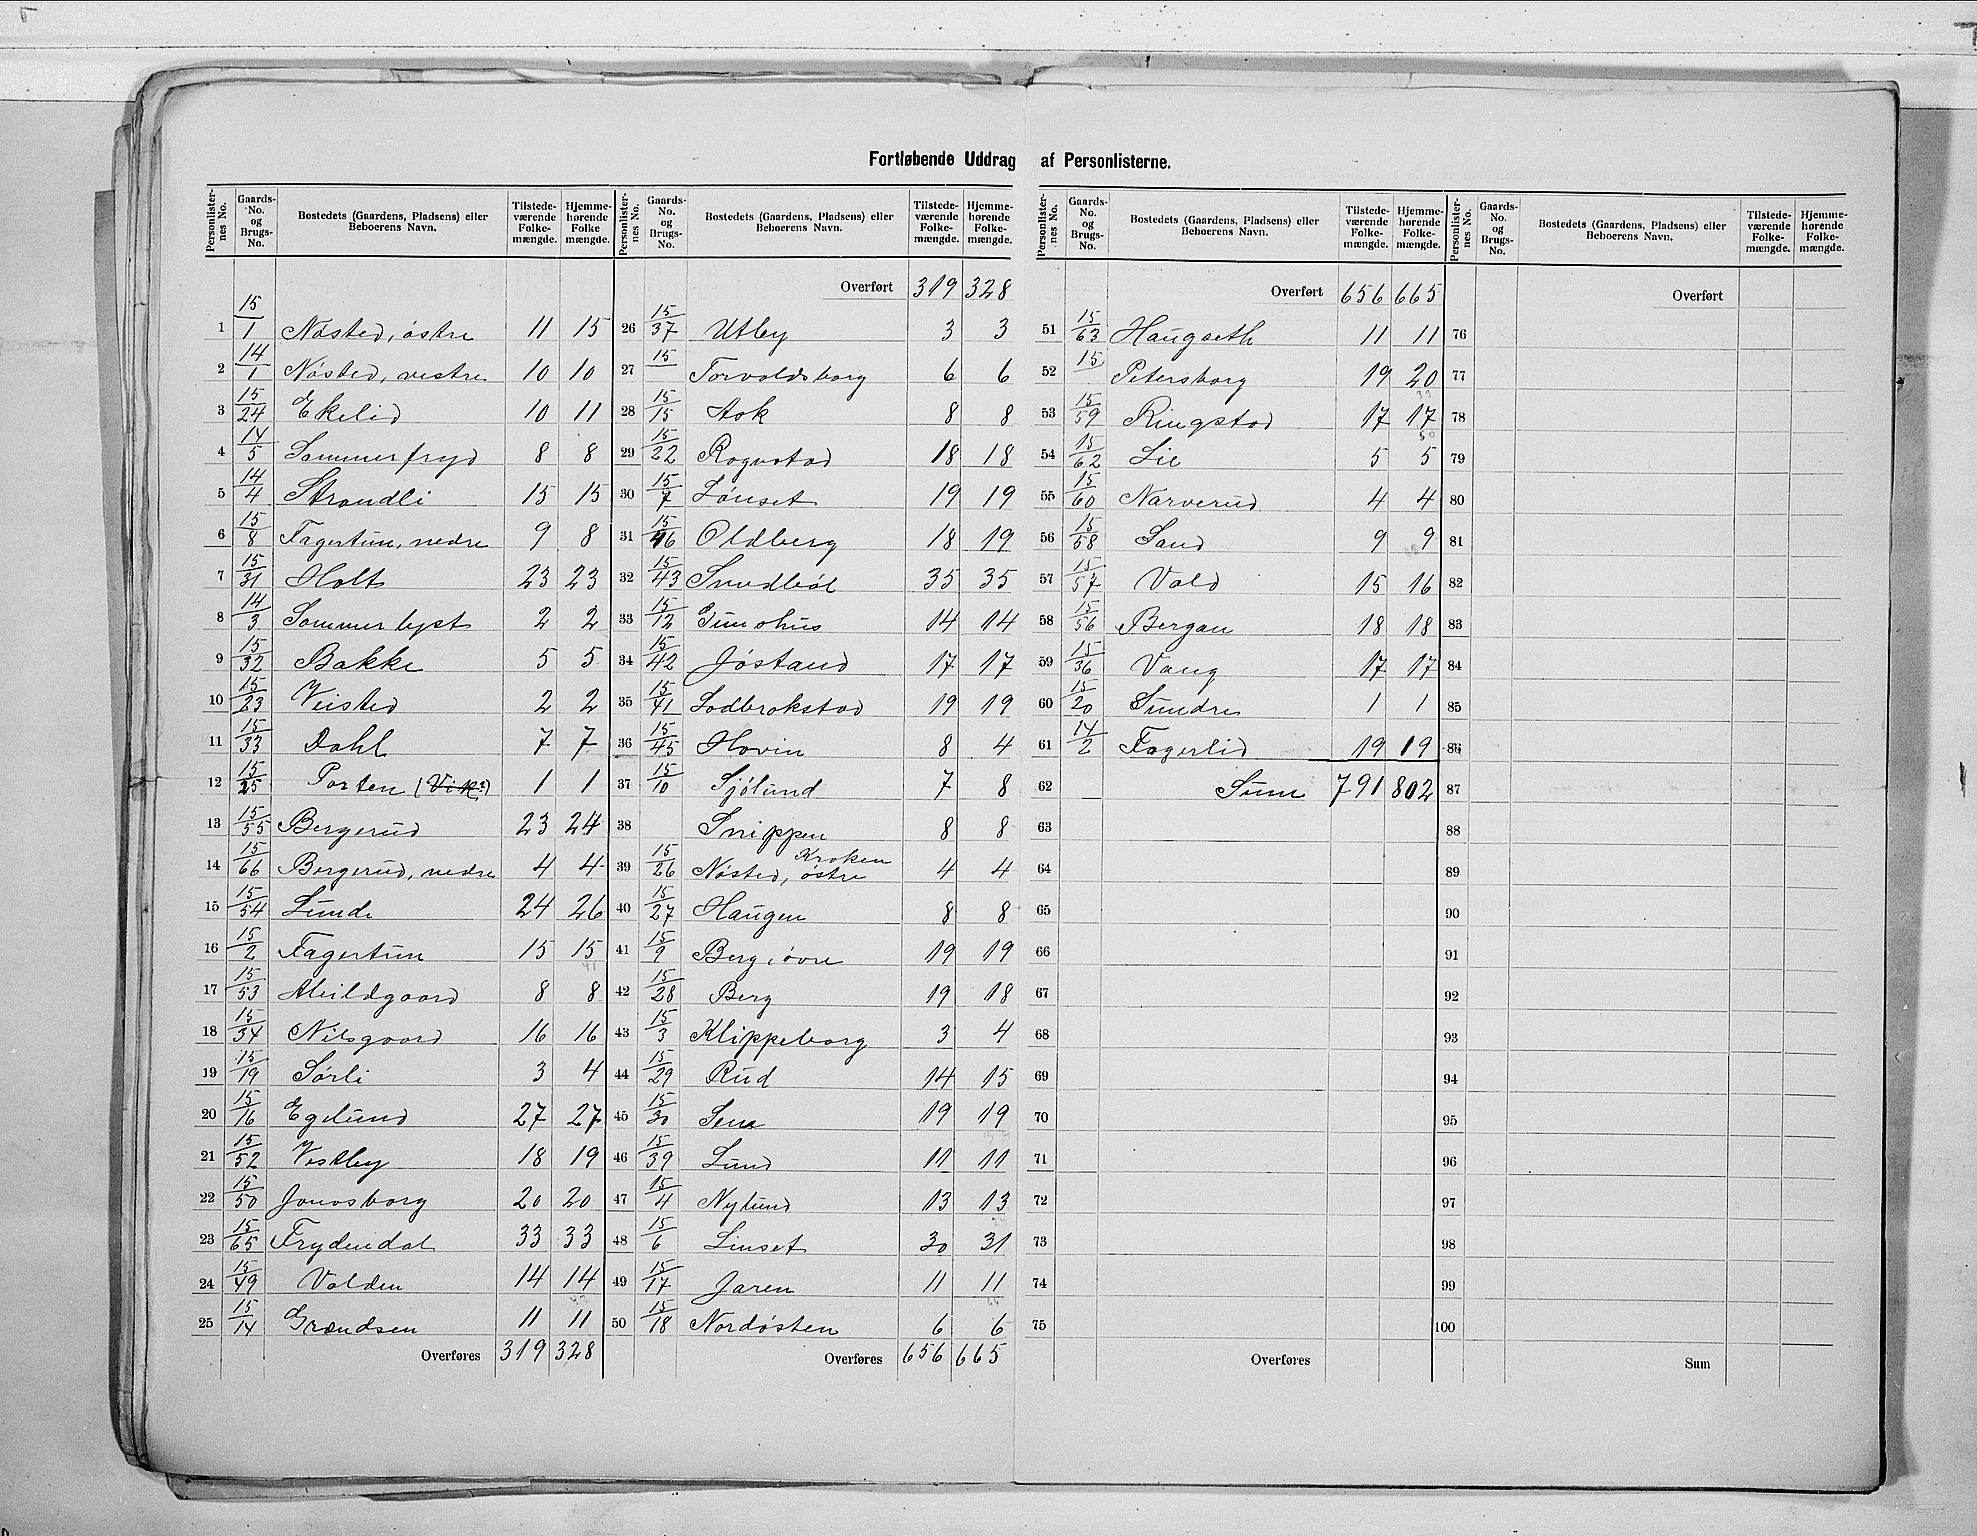 Fortløbende Uddrag af Personlisterne.
Personlister-nes No. | Gaards-No. og Brugs-No. | Bostedets (Gaardens, Pladsens) eller Beboerens Navn. | Tilstede-værende Folke-mængde. | Hjemme-hørende Folke mængde.
1 15/1 Nøsted, østre 11 15
2 14/1 Nøsted, vestre 10 10
3 15/24 Ekelid 10 11
4 14/5 Sommerfryd 8 8
5 14/4 Strandli 15 15
6 15/8 Fagertun, nedre 9 8
7 15/31 Holt 23 23
8 14/3 Sommerlyst 2 2
9 15/32 Bakke 5 5
10 15/23 Veisted 2 2
11 15/33 Dahl 7 7
12 15/25 Porten (Vik) 1 1
13 15/55 Bergerud 23 24
14 15/66 Bergerud, nedre 4 4
15 15/54 Lunde 24 26
16 15/2 Fagertun 15 15
17 15/53 Abildgaard 8 8
18 15/34 Nilsgaard 16 16
19 15/19 Sørli 3 4
20 15/16 Egelund 27 27
21 15/52 Vestby 18 19
22 15/50 Jonasborg 20 20
23 15/65 Frydendal 33 33
24 15/49 Volden 14 14
25 15/14 Grændsen 11 11
Overføres 319 328
Personlister-nes No. | Gaards-No. og Brugs-No. | Bostedets (Gaardens, Pladsens) eller Beboerens Navn. | Tilstede-værende Folke-mængde. | Hjemme-hørende Folke-mængde.
Overført 319 328
26 15/37 Utby 3 3
27 15/ Torvaldsborg 6 6
28 15/15 Ask 8 8
29 15/22 Rognstad 18 18
30 15/7 Lønset 19 19
31 15/46 Oldberg 18 19
32 15/43 Smedbøl 35 35
33 15/12 Gimohus 14 14
34 15/42 Jøstand 17 17
35 15/41 Lodbrokstad 19 19
36 15/45 Hovin 8 4
37 15/10 Sjølund 7 8
38 Snippen 8 8
39 15/26 Nøsted, østre Kroken 4 4
40 15/27 Haugen 8 8
41 15/9 Berg, øvre 19 19
42 15/28 Berg 19 18
43 15/3 Klippeborg 3 4
44 15/29 Rud 14 15
45 15/30 Sena 19 19
46 15/39 Lund 11 11
47 15/4 Nylund 13 13
48 15/6 Linset 30 31
49 15/17 Jaren 11 11
50 15/18 Nordøsten 6 6
Overføres 656 665
Personlister-nes No. | Gaards-No. og Brugs-No. | Bostedets (Gaardens, Pladsens) eller Beboerens Navn. | Tilstede-værende Folke-mængde. | Hjemme-hørende Folke-mængde.
Overført 656 665
51 15/63 Haugseth 11 11
52 15/ Petersborg 19 20
53 15/59 Ringstad 17 17
54 15/62 Lie 5 5
55 15/60 Narverud 4 4
56 15/58 Sand 9 9
57 15/57 Vold 15 16
58 15/56 Bergan 18 18
59 15/36 Vang 17 17
60 15/20 Sundre 1 1
61 14/2 Fagerlid 19 19
62 Sum 791 802
63
64
65
66
67
68
69
70
71
72
73
74
75
Overføres
Personlister-nes No. | Gaards-No. og Brugs-No. | Bostedets (Gaardens, Pladsens) eller Beboerens Navn. | Tilstede-værende Folke-mængde. | Hjemme-hørende Folke-mængde.
Overført
76
77
78
79
80
81
82
83
84
85
86
87
88
89
90
91
92
93
94
95
96
97
98
99
100
Sum